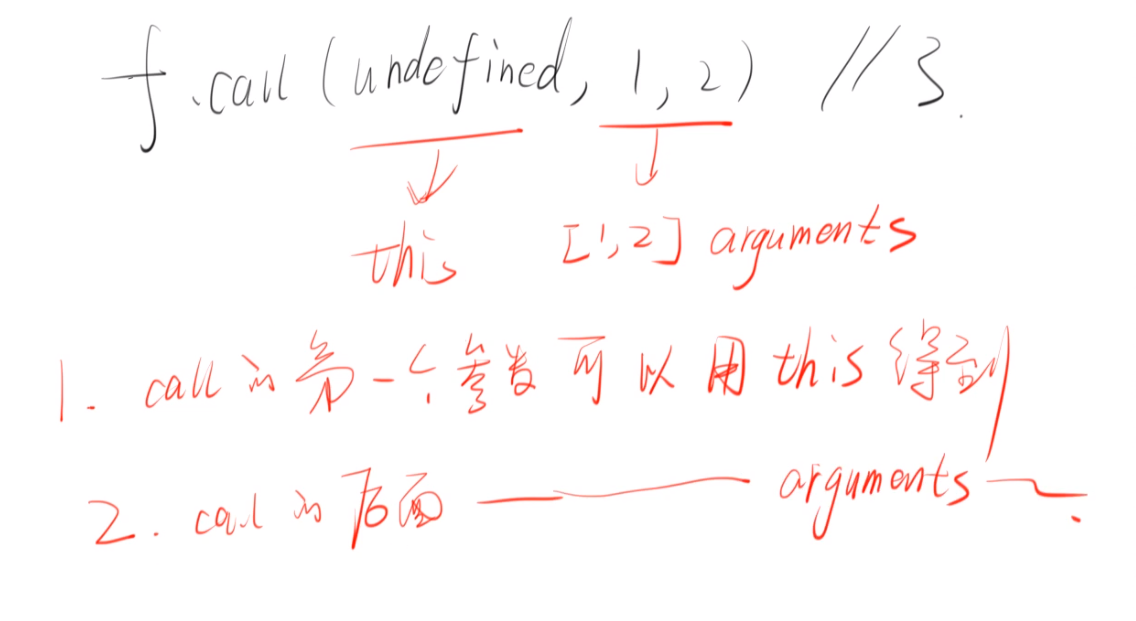 f.call(undefined, 1, 2) //3.
this [1,2] arguments
1. call的第一个参数可以用this得到
2. call的后面——arguments～.